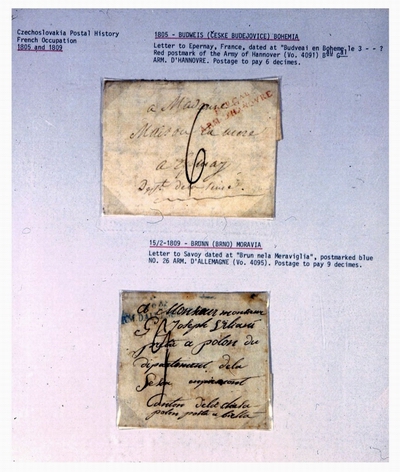 Czechoslovakia Postal History
French Occupation
1805 and 1809
1805 - BUDWEIS (ČESKE BUDEJOVICE) BOHEMIA
Letter to Epernay, France, dated at "Budweai en Boheme, le 3 - - ?
Red postmark of the Army of Hannover (Vo. 4091)
ARM. D'HANNOVRE. Postage to pay 6 decimes.
a Madame
ARM. D'HANOVRE
Maison
6
a Epernay
15/2-1809 - BRÜNN (BRNO) MORAVIA
Letter to Savoy dated at "Brun nela Meraviglia", postmarked blue
NO. 26 ARM. D'ALLEMAGNE (Vo. 4095). Postage to pay 9 decimes.
A Monsieur
Joseph
a polon du
département dela
Canton
polon